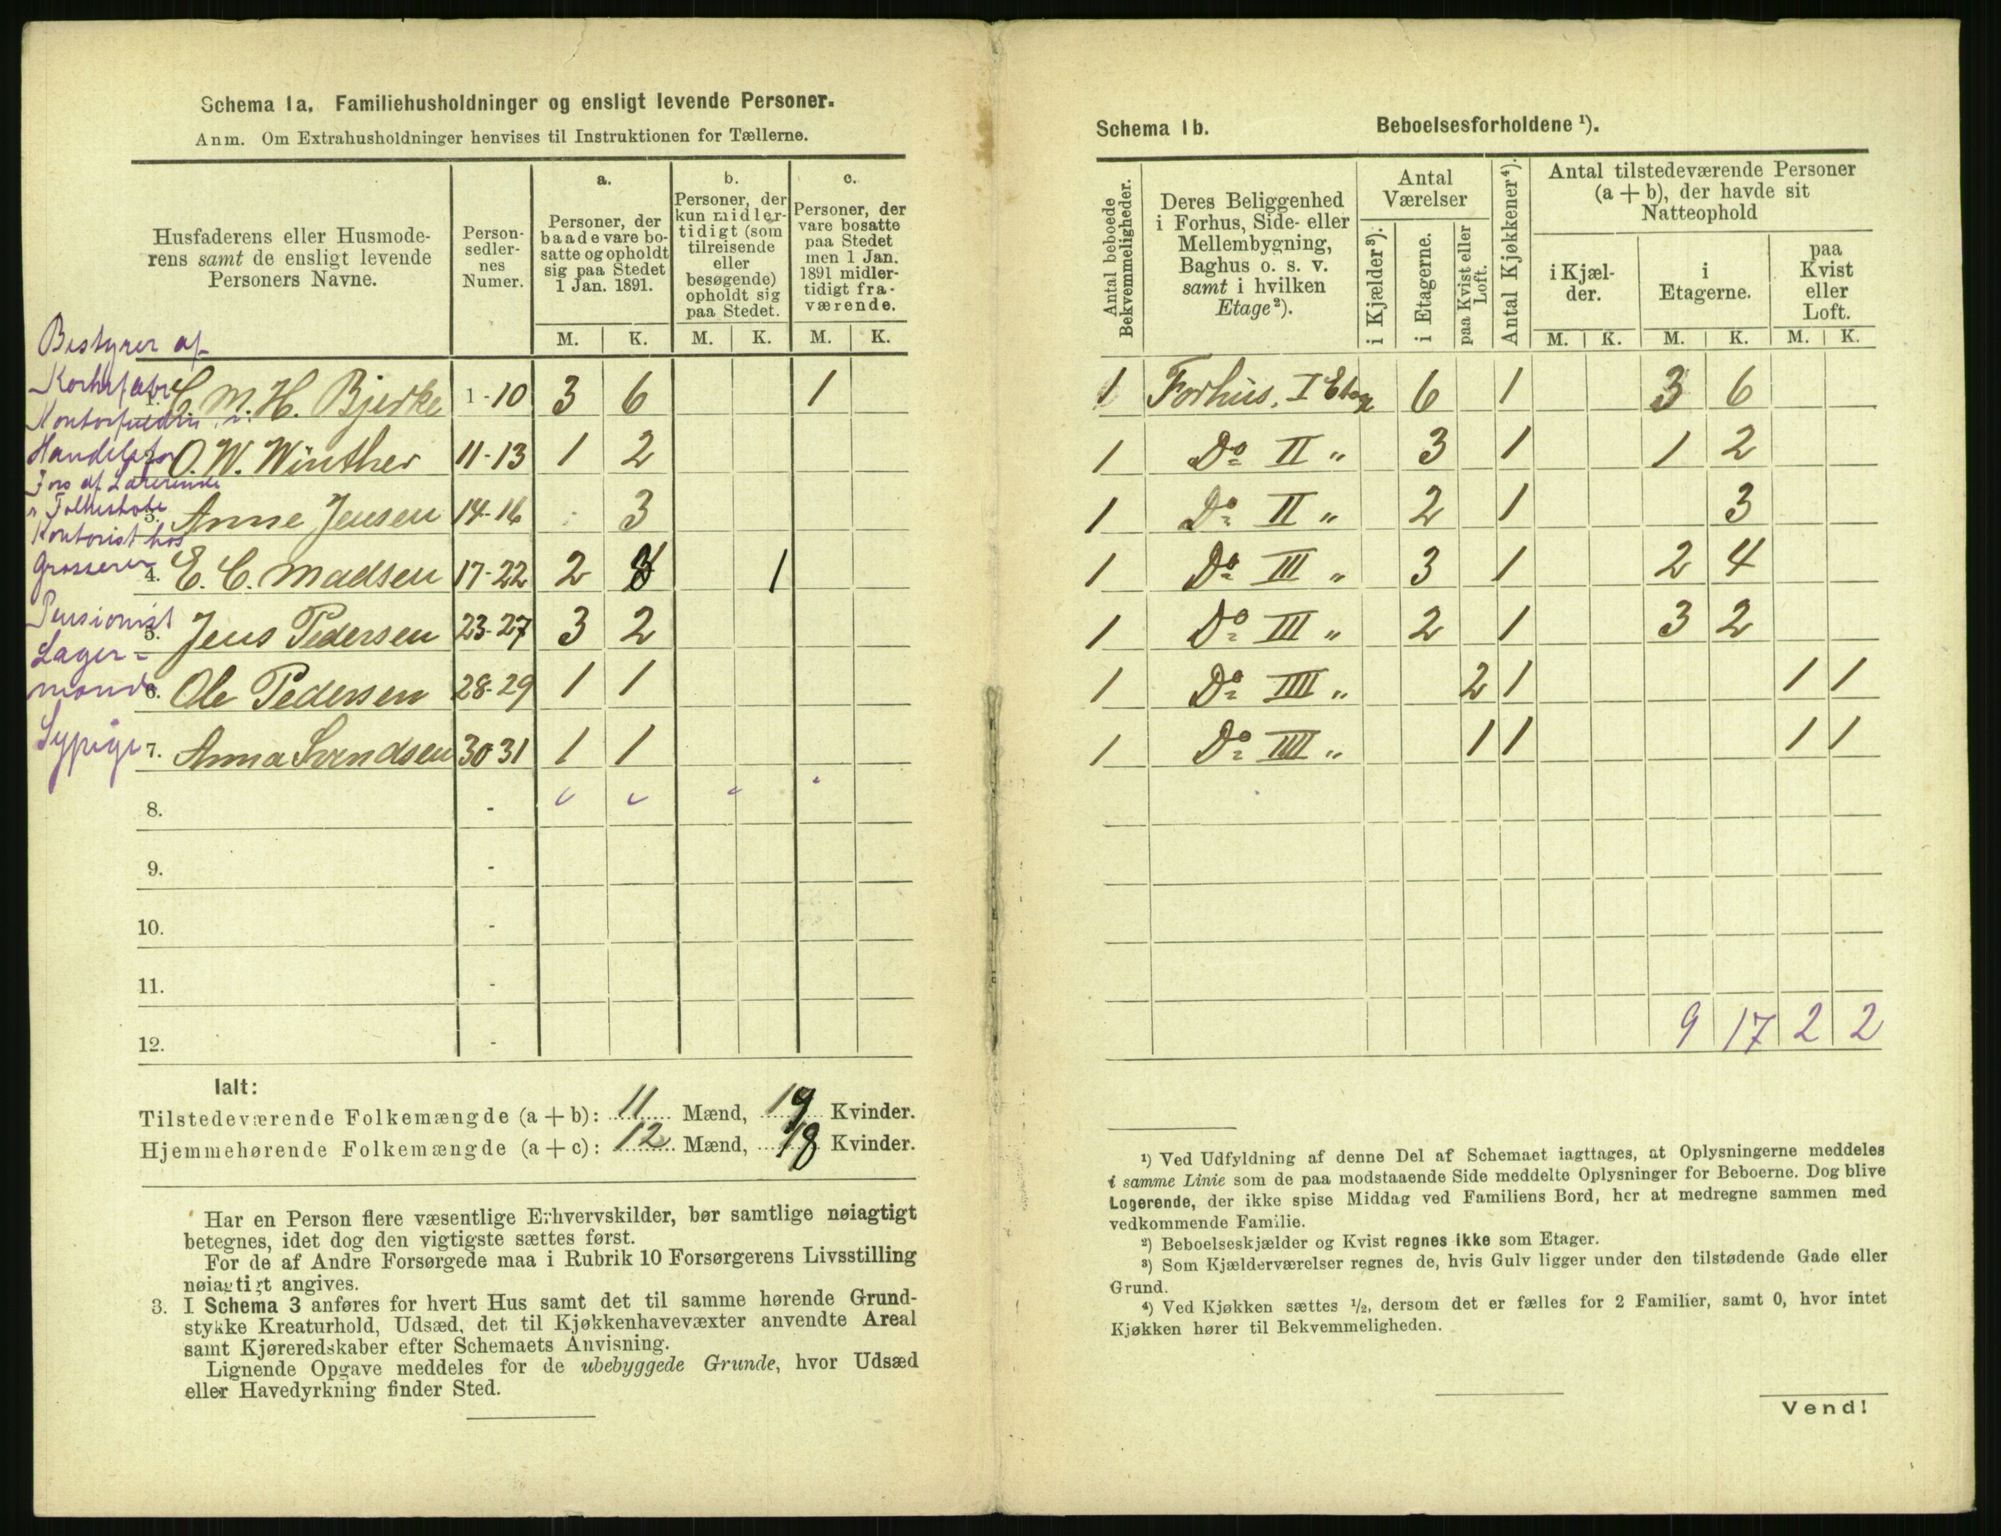 Schema 1a. Familiehusholdninger og ensligt levende Personer.
Anm. Om Extrahusholdninger henvises til Instruktionen for Tællerne.
Husfaderens eller Husmode-
rens samt de ensligt levende
Personers Navne.
Person-
sedler-
nes
Numer.
a.
Personer, der
baade vare bo-
satte og opholdt
sig paa Stedet
1 Jan. 1891.
b.
Personer, der
kun midler-
tidigt (som
tilreisende
eller
besøgende)
opholdt sig
paa Stedet.
c.
Personer, der
vare bosatte
paa Stedet
men 1 Jan.
1891 midler-
tidigt fra-
værende.
M. K. M. K. M. K.
Bestyrer af
1. C. M. H. Bjerke 1-10 3 6 1
Handelsfor
2. O. W. Winther 11-13 1 2
Fors af Lærerinde
v Folkeskole
3. Anne Jensen 14-16 3
Kontorist hos
Grosserer
4. E. C. Madsen 17-22 2 3 1
Pensionist
5. Jens Pedersen 23-27 3 2
Lager-
mand
6. Ole Pedersen 28-29 1 1
Sypige
7. Anna Svendsen 30 31 1 1
8. -
9. -
10. -
11. -
12. -
Ialt:
Tilstedeværende Folkemængde (a + b): 11 Mænd, 19 Kvinder.
Hjemmehørende Folkemængde (a + c): 12 Mænd, 18 Kvinder.
Har en Person flere væsentlige Erhvervskilder, bør samtlige nøiagtigt
betegnes, idet dog den vigtigste sættes først.
For de af Andre Forsørgede maa i Rubrik 10 Forsørgerens Livsstilling
nøiagtigt angives.
3. I Schema 3 anføres for hvert Hus samt det til samme hørende Grund-
stykke Kreaturhold, Udsæd, det til Kjøkkenhavevæxter anvendte Areal
samt Kjøreredskaber efter Schemaets Anvisning.
Lignende Opgave meddeles for de ubebyggede Grunde, hvor Udsæd
eller Havedyrkning finder Sted.
Schema 1b. Beboelsesforholdene ¹).
Antal beboede
Bekvemmeligheder.
Deres Beliggenhed
i Forhus, Side- eller
Mellembygning,
Baghus o. s. v.
samt i hvilken
Etage²).
Antal
Værelser
i Kjælder³).
i Etagerne.
paa Kvist eller
Loft.
Antal Kjøkkener⁴).
Antal tilstedeværende Personer
(a + b), der havde sit
Natteophold
i Kjæl-
der.
i
Etagerne.
paa
Kvist
eller
Loft.
M. K. M. K. M. K.
1 Forhus, I Etage 6 1 3 6
1 Do II „ 3 1 1 2
1 Do II „ 2 1 3
1 Do III „ 3 1 2 4
1 Do III „ 2 1 3 2
1 Do IIII „ 2 1 1 1
1 Do IIII „ 1 1 1 1
9 17 2 2
¹) Ved Udfyldning af denne Del af Schemaet iagttages, at Oplysningerne meddeles
i samme Linie som de paa modstaaende Side meddelte Oplysninger for Beboerne. Dog blive
Logerende, der ikke spise Middag ved Familiens Bord, her at medregne sammen med
vedkommende Familie.
²) Beboelseskjælder og Kvist regnes ikke som Etager.
³) Som Kjælderværelser regnes de, hvis Gulv ligger under den tilstødende Gade eller
Grund.
⁴) Ved Kjøkken sættes ½, dersom det er fælles for 2 Familier, samt 0, hvor intet
Kjøkken hører til Bekvemmeligheden.
Vend!